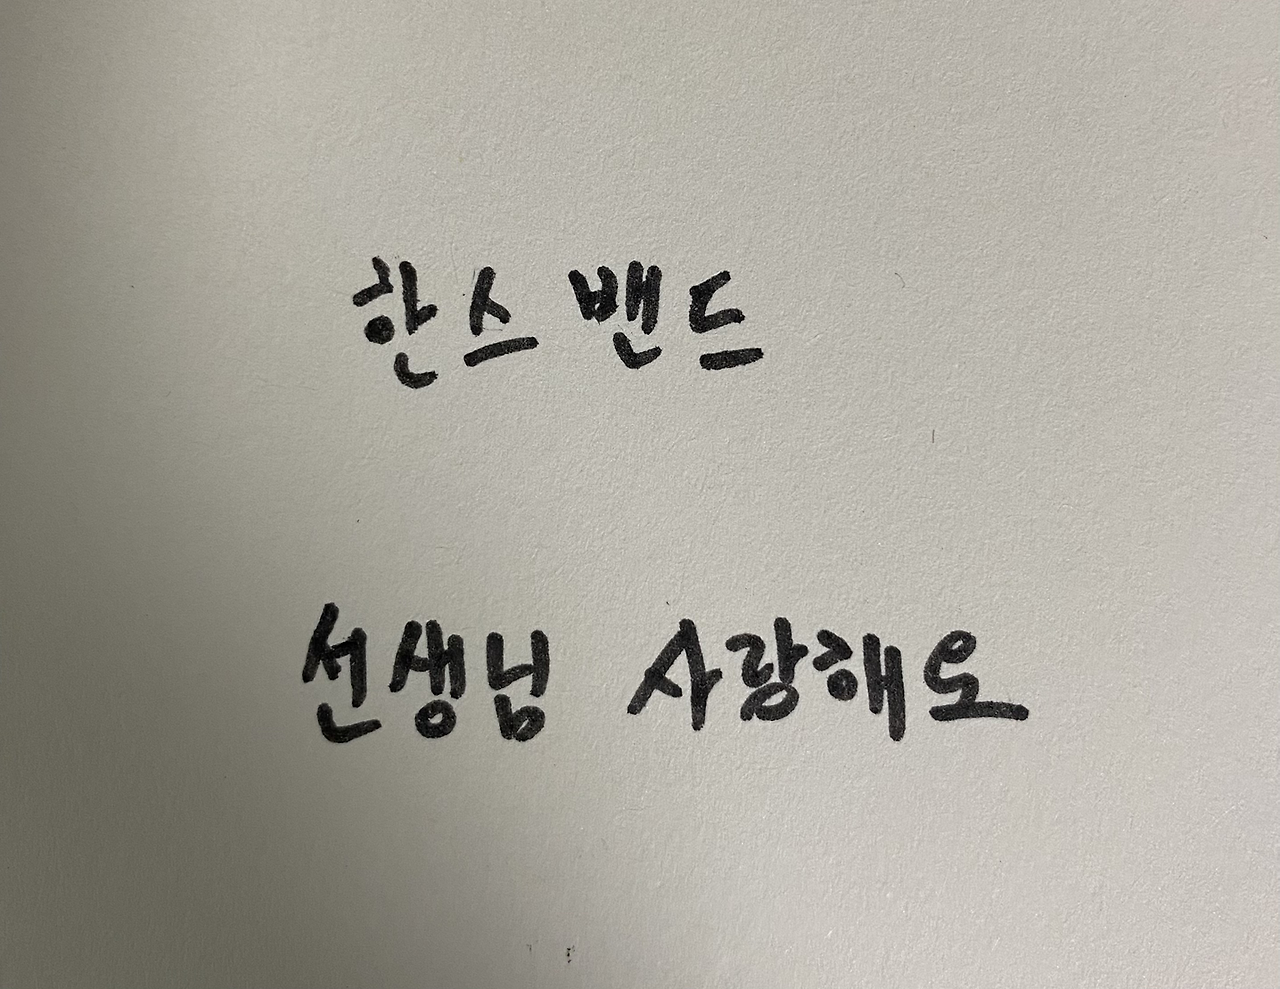 한스밴드
선생님 사랑해요